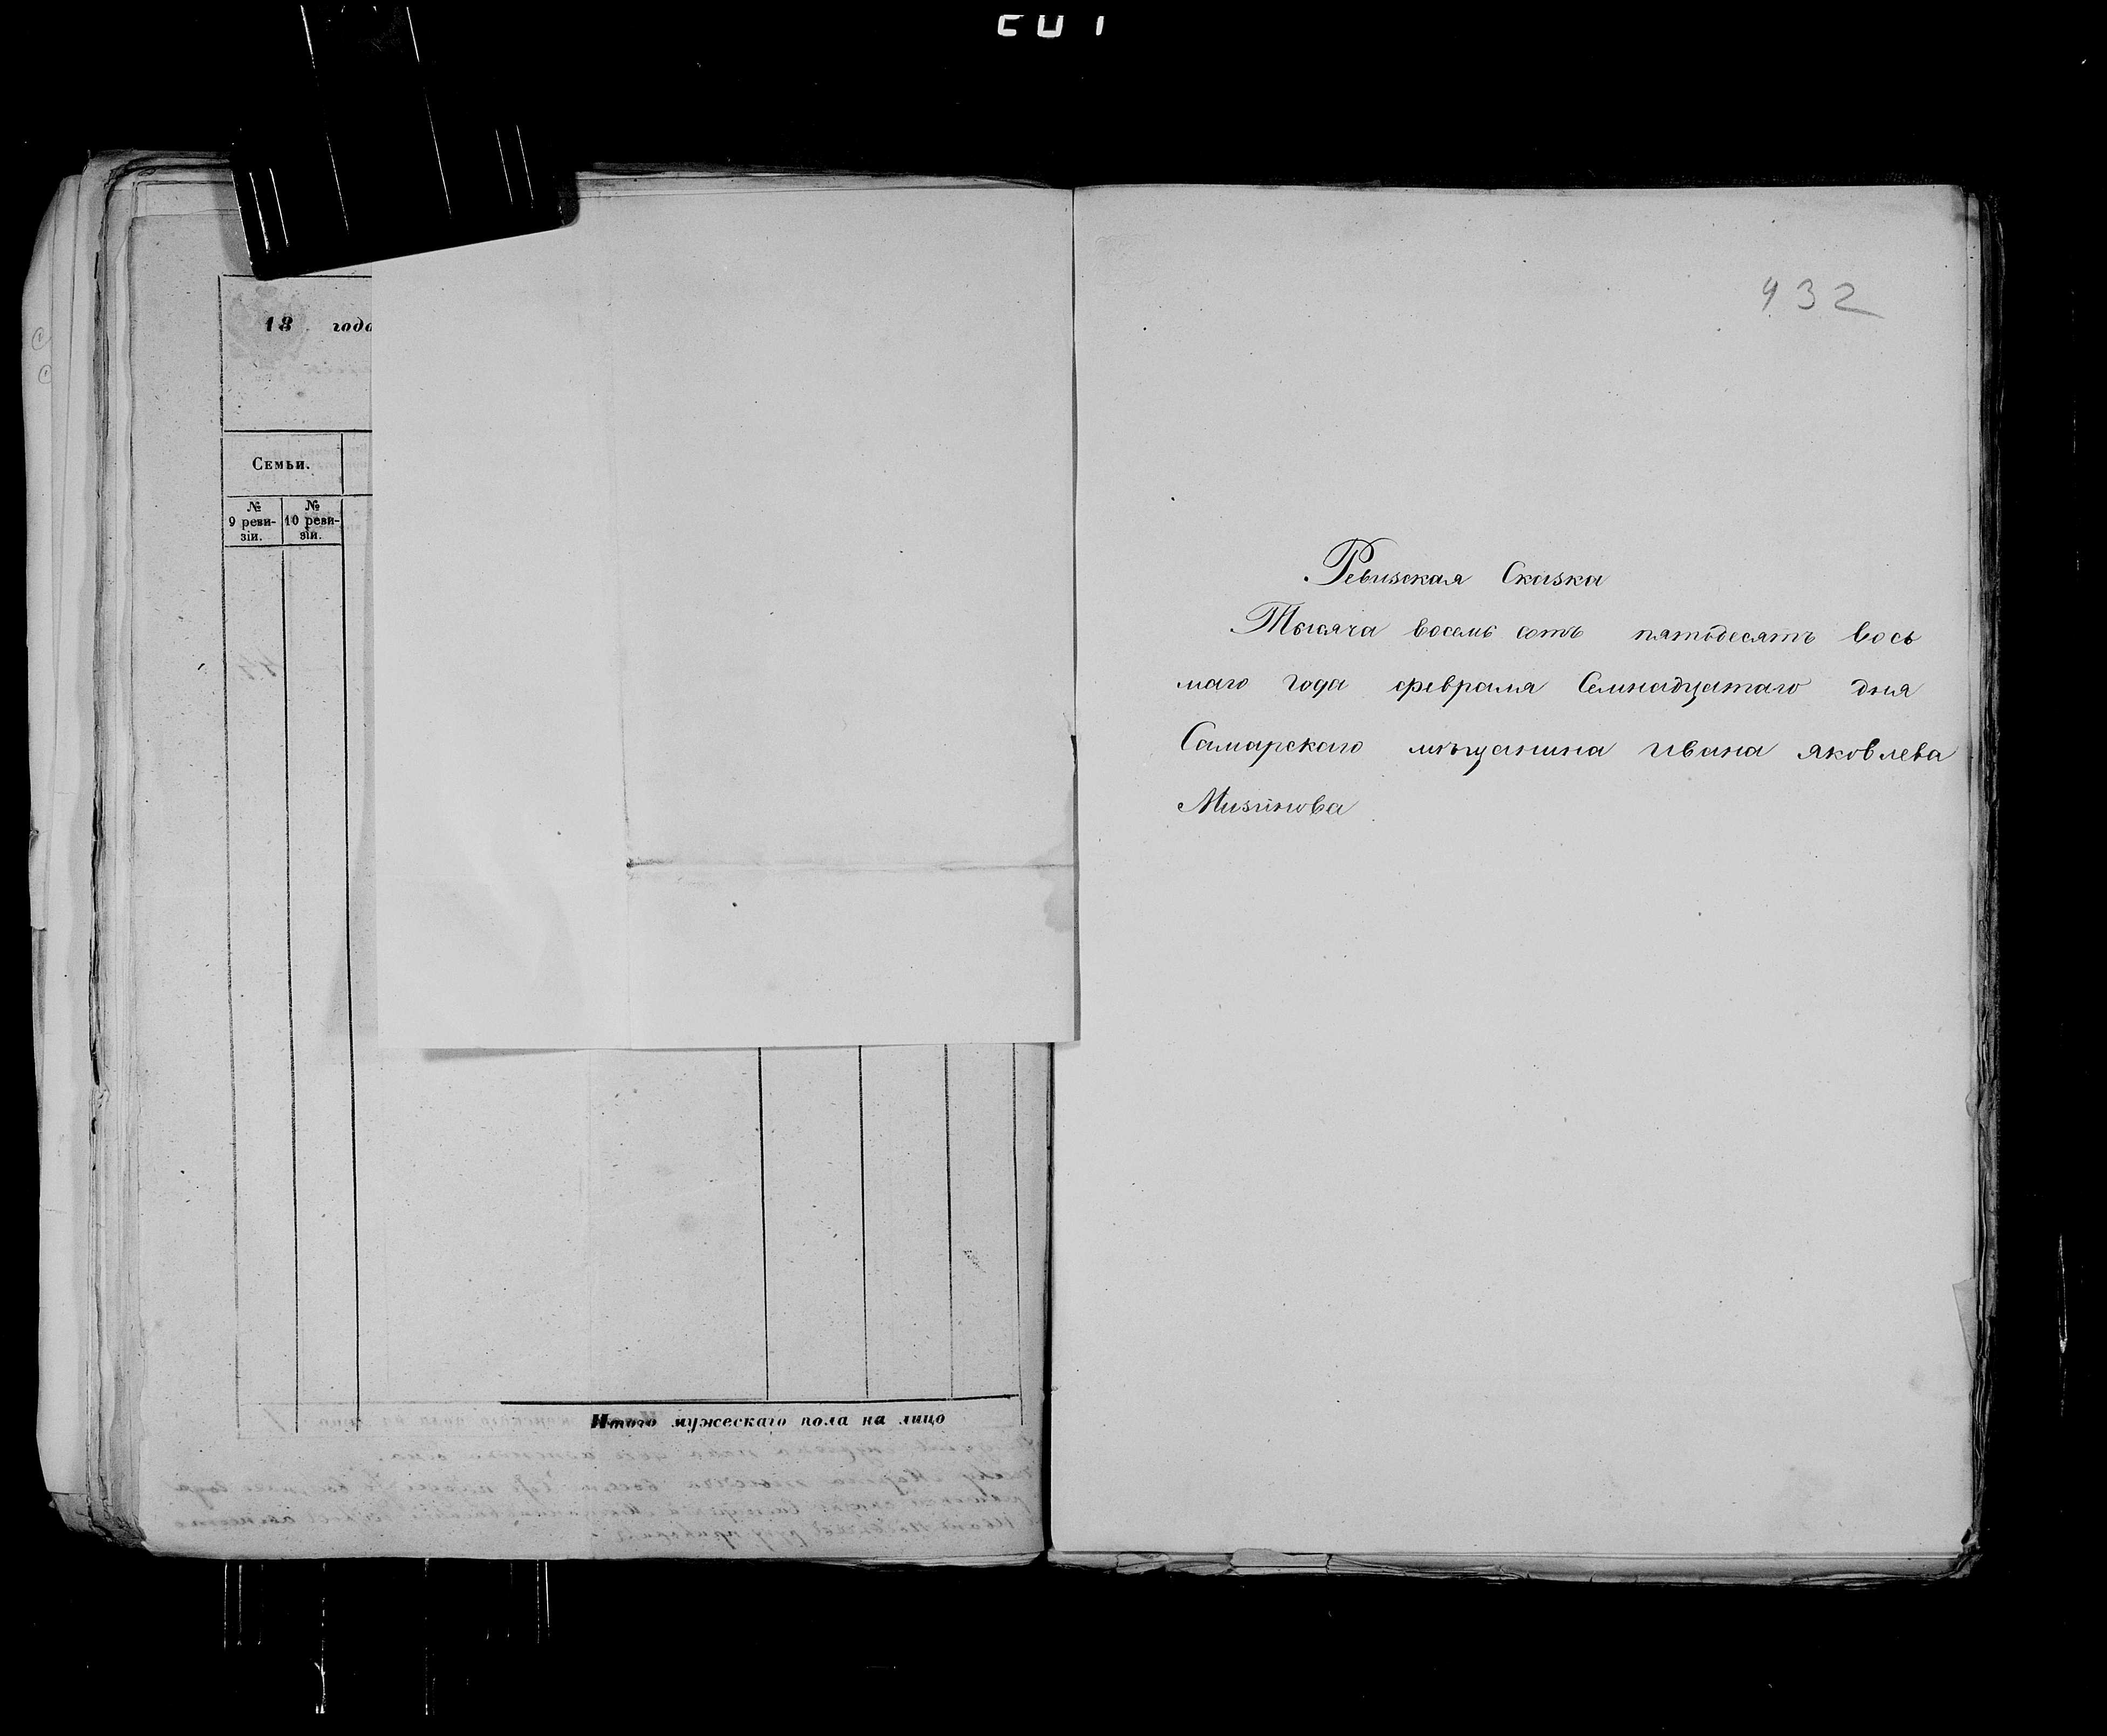 18 года
Семьи.
№ 9 реви-зіи.
№ 10 реви-зіи.
Итого мужескаго пола на лицо
432
Ревизская Сказка
Тысяча восемь сотъ пятьдесятъ вось
маго года февраля Семнадцатаго дня
Самарскаго мѣщанина Ивана Яковлева
Мизинова